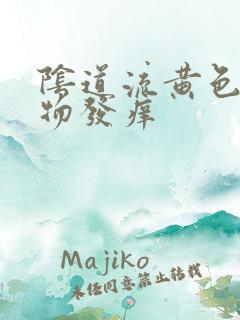 陰道流黃色
物發痒
Majiko
未任同意禁止转载